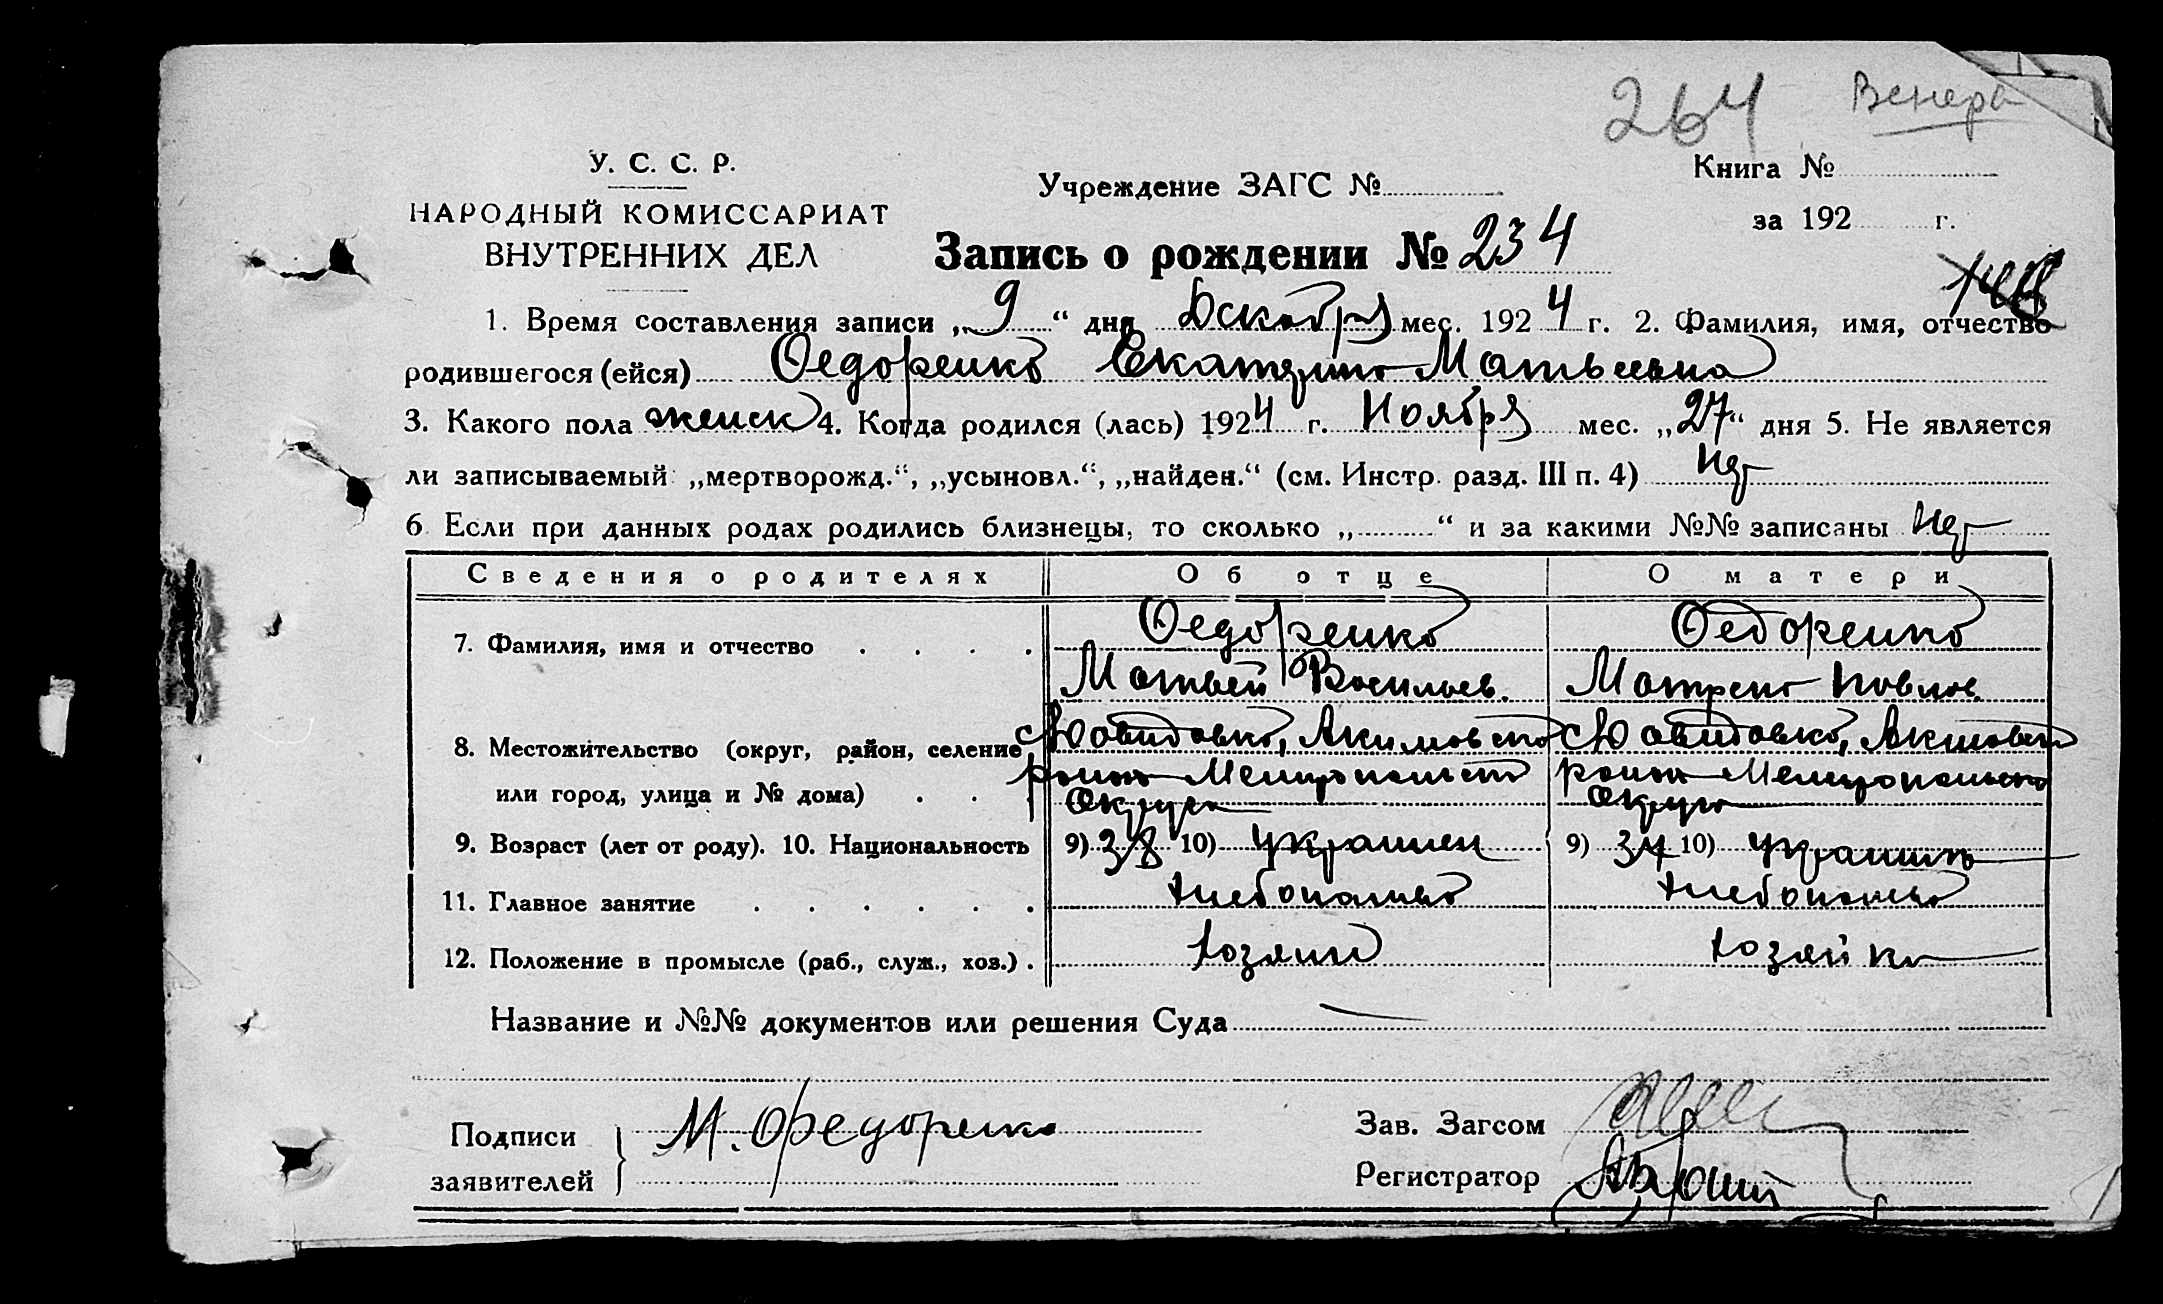 264 Венера
У. С. С. Р.
НАРОДНЫЙ КОМИССАРИАТ
ВНУТРЕННИХ ДЕЛ
Учреждение ЗАГС №
Книга №
за 192 г.
Запись о рождении № 234
1. Время составления записи „ 9 “ дня Декабря мес. 1924 г. 2. Фамилия, имя, отчество
родившегося (ейся) Федоренко Екатерина Матвеевна
3. Какого пола женск 4. Когда родился (лась) 1924 г. Ноября мес. „27“ дня 5. Не является
ли записываемый „мертворожд.“, „усыновл.“, „найден.“ (см. Инстр. разд. III п. 4) нет
6. Если при данных родах родились близнецы, то сколько „ “ и за какими №№ записаны нет
Сведения о родителях Об отце О матери
7. Фамилия, имя и отчество Федоренко Федоренко
Матвей Васильев. Матрена Павлов.
8. Местожительство (округ, район, селение с Давидовка, Акимовско с Давидовка, Акимовск
или город, улица и № дома) район Мелитопольск район Мелитопольско
округа округа
9. Возраст (лет от роду). 10. Национальность 9) 38 10) украинец 9) 34 10) украинка
11. Главное занятие хлебопашество хлебопашество
12. Положение в промысле (раб., служ., хоз.) хозяин хозяйка
Название и №№ документов или решения Суда —
Подписи М. Федоренко
заявителей
Зав. Загсом
Регистратор